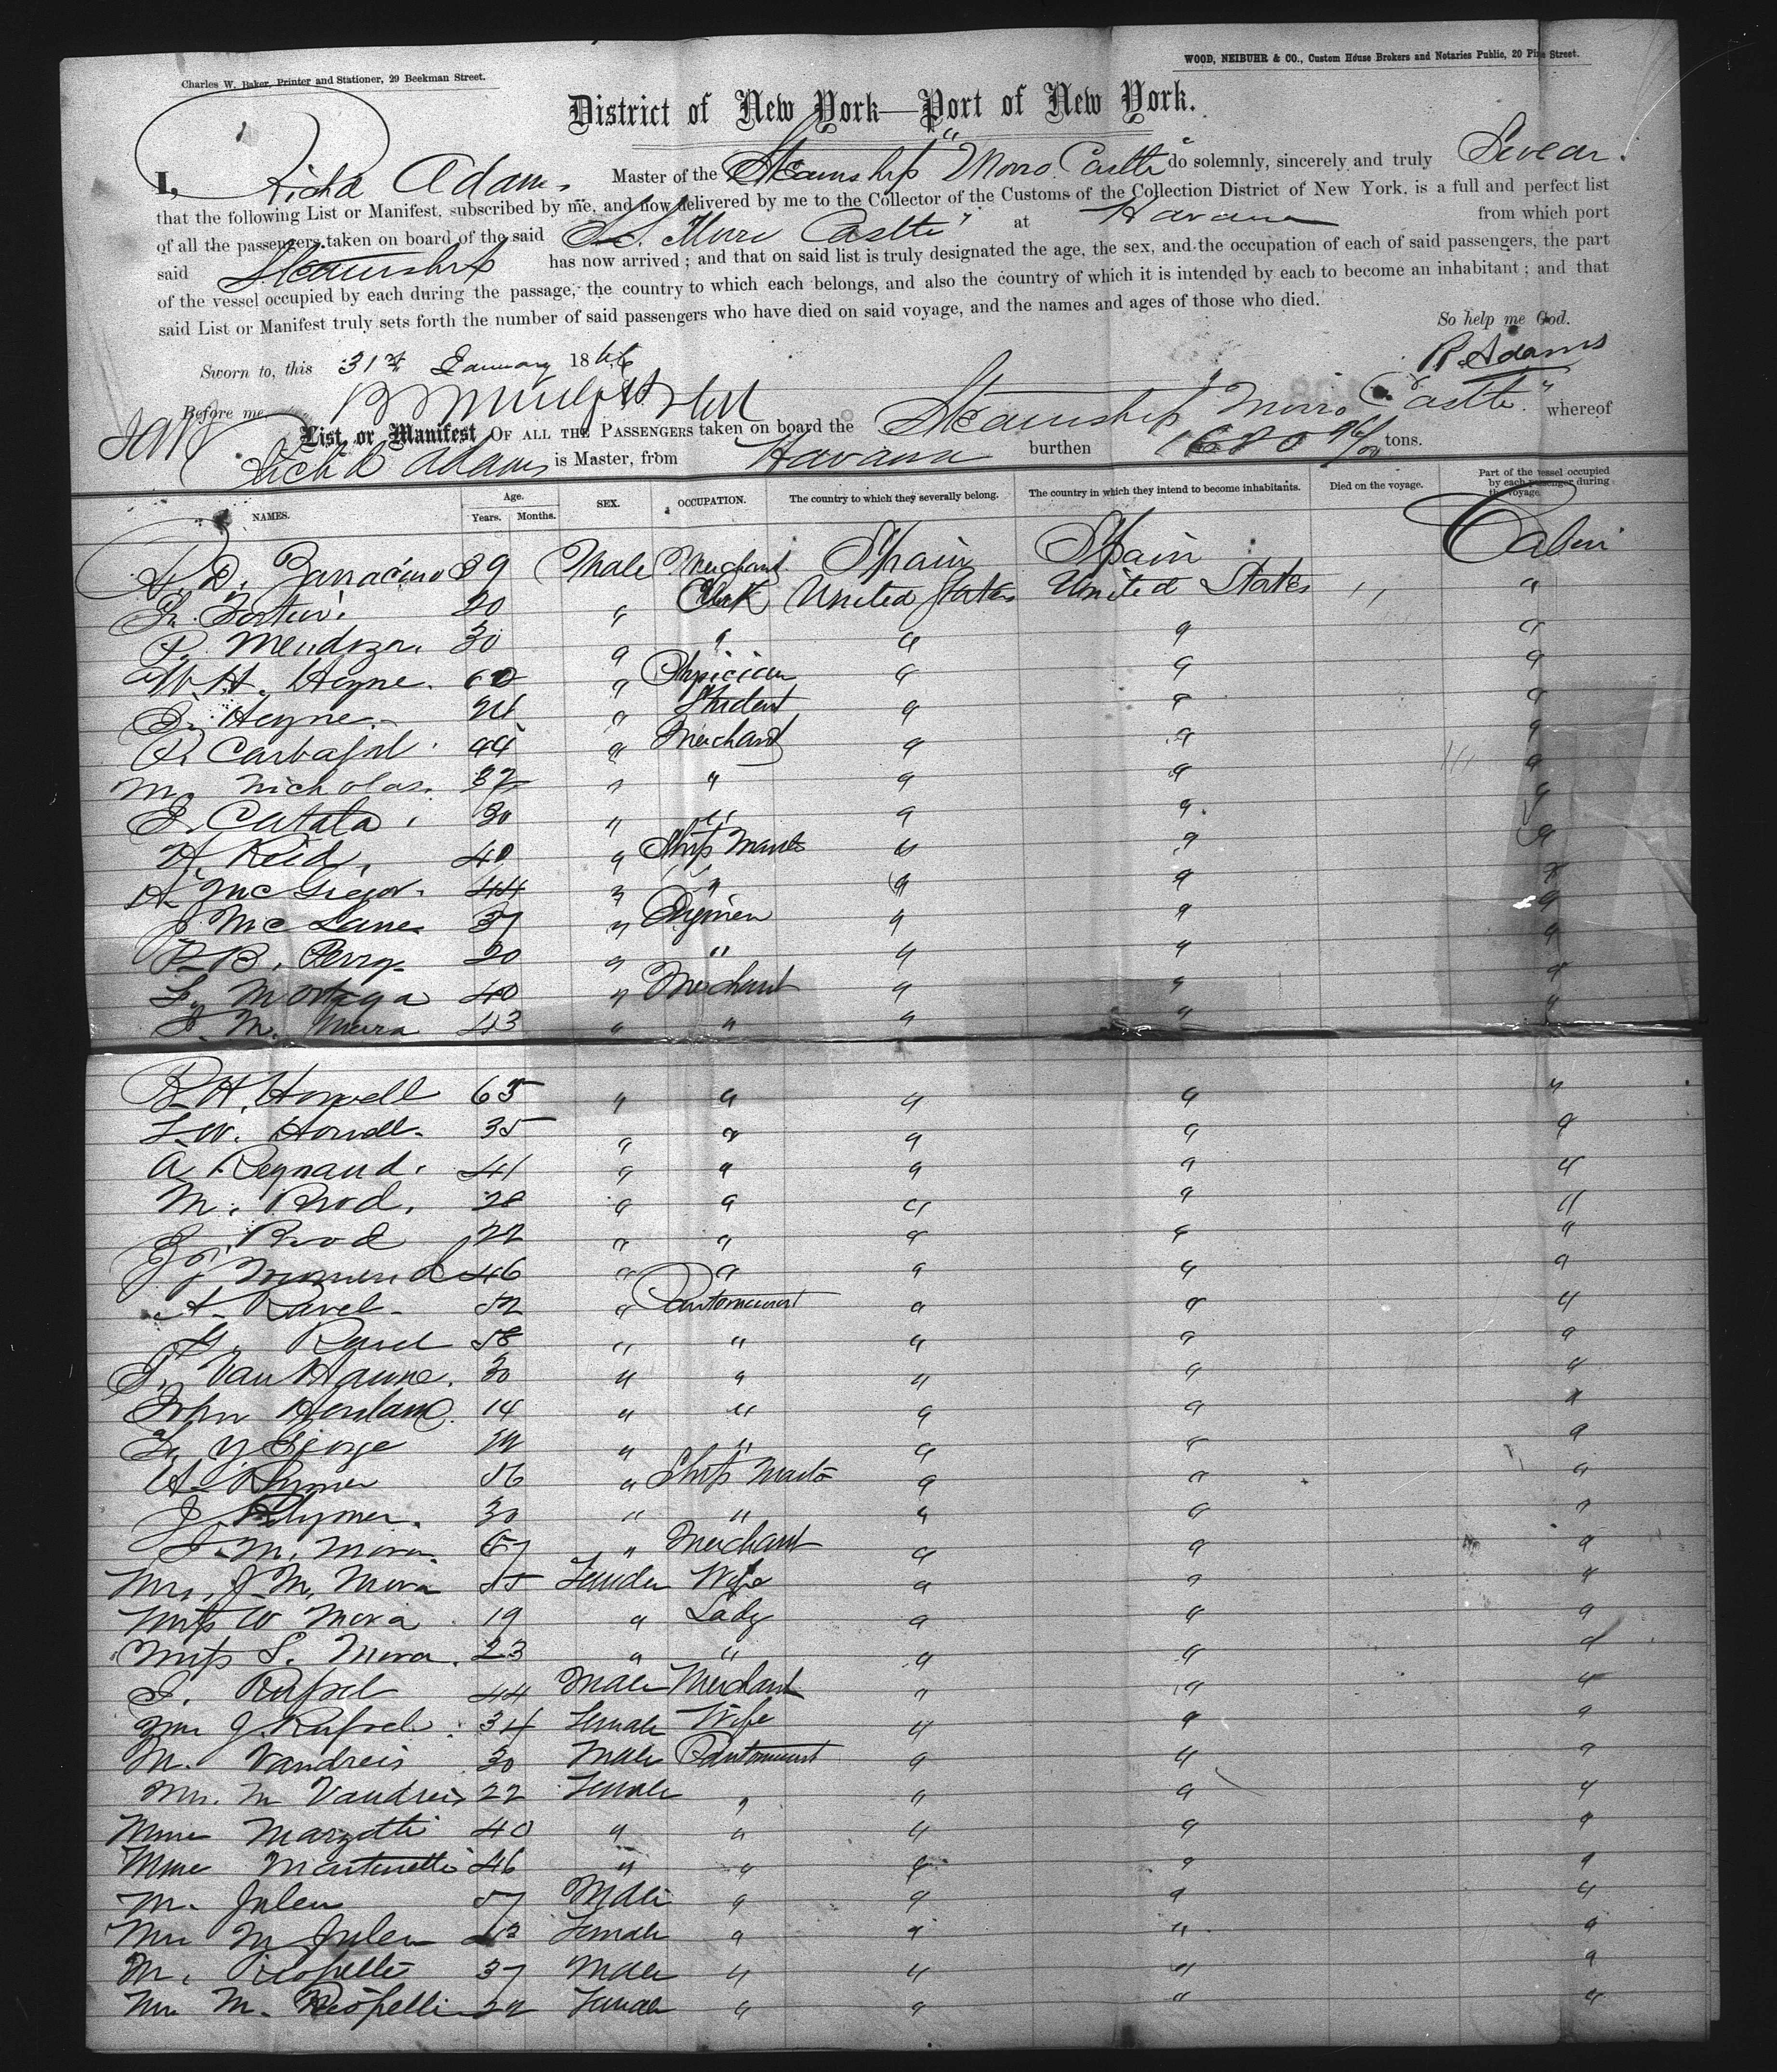 Charles W. Baker, Printer and Stationer, 29 Beekman Street.
WOOD, NEIBUHR & CO., Custom House Brokers and Notaries Public, 20 Pine Street.
District of New York—Port of New York.
I, Richd Adams Master of the Steamship "Morro Castle" do solemnly, sincerely and truly Swear.
that the following List or Manifest, subscribed by me, and now delivered by me to the Collector of the Customs of the Collection District of New York, is a full and perfect list
of all the passengers taken on board of the said S.S. Morro Castle" at Havana from which port
said Steamship has now arrived; and that on said list is truly designated the age, the sex, and the occupation of each of said passengers, the part
of the vessel occupied by each during the passage, the country to which each belongs, and also the country of which it is intended by each to become an inhabitant; and that
said List or Manifest truly sets forth the number of said passengers who have died on said voyage, and the names and ages of those who died.
So help me God.
Sworn to, this 31st January 1866 R Adams
Before me,
List or Manifest OF ALL THE PASSENGERS taken on board the Steamship "Morro Castle." whereof
Richd Adams is Master, from Havana burthen 1680 96/100 tons.
NAMES. Age. Years. Months. SEX. OCCUPATION. The country to which they severally belong. The country in which they intend to become inhabitants. Died on the voyage. Part of the vessel occupied by each passenger during the voyage.
39 Male Merchant Spain Spain Cabin
20 " Clerk United States United States "
P. Mendoza. 30 " " " " "
W. H. Heyne. 60 " Physician " " "
J. Heyne. 24 " Student " " "
P. Carbajal 44 " Merchant " " "
M. Nicholas. 32 " " " " "
J. Catala. 30 " " " " "
H. Reid, 40 " Ship " " "
A McGregor. 44 " " " " "
J. McLane 37 " " " "
P. B. Perry. 20 " " " " "
L. M Ortega 40 " Merchant " " "
J. M. 43 " " " " "
B. H. Howell 65 " " " " "
L. W. Howell. 35 " " " " "
A Reynaud. 41 " " " " "
M. Brod. 28 " " " " "
Brod 22 " " " " "
46 " " " " "
A. Ravel 52 " Pantomimist " " "
Ravel 58 " " " " "
J. Van Hamme. 30 " " " " "
John 14 " " " " "
L. Y George " " " " "
A. Rymer 56 " Ship " " "
J. Rhymer. 30 " " " " "
J. M. Mora. 67 " Merchant " " "
Mrs. J. M. Mora 55 Female Wife " " "
Miss W Mora 19 " Lady " " "
Miss S. Mora. 23 " " " " "
J. 44 Male Merchant " " "
Mrs J. 34 Female Wife " " "
M. Vandreis 30 Male Pantomimist " " "
Mrs. M Vandreis 22 Female " " " "
Mme Marzetti 40 " " " " "
Mme Martinetti 46 " " " " "
M. Julen 57 Male " " " "
Mrs M Julen 43 Female " " " "
M. 37 Male " " " "
Mrs M. Female " " " "